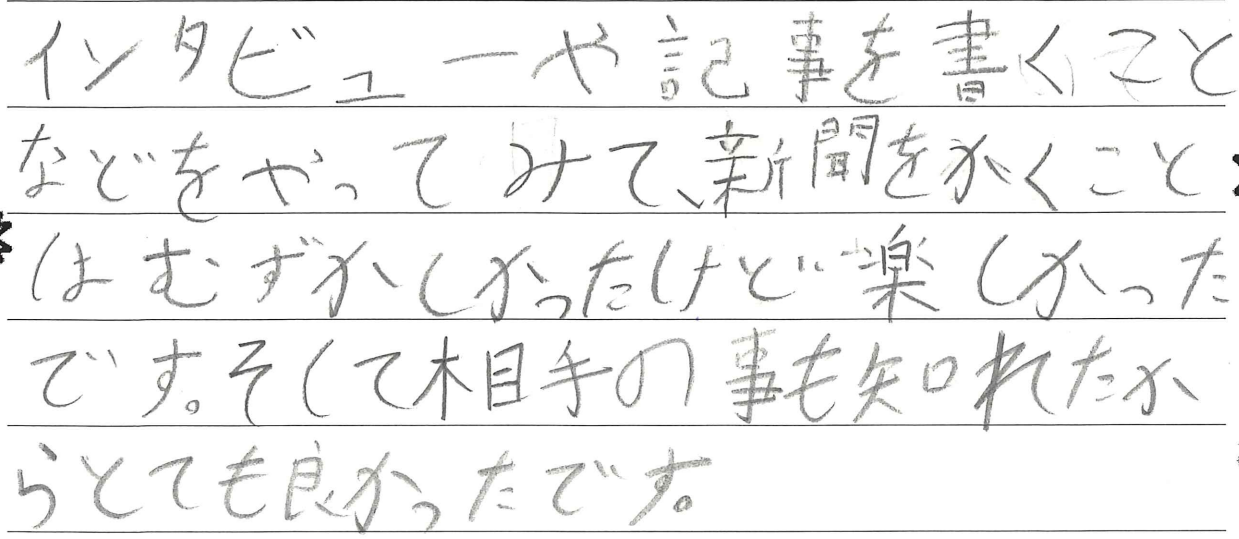 インタビューや記事を書くこと
などをやってみて、新聞をかくこと
はむずかしかったけど楽しかった
です。そして相手の事も知れたか
らとても良かったです。